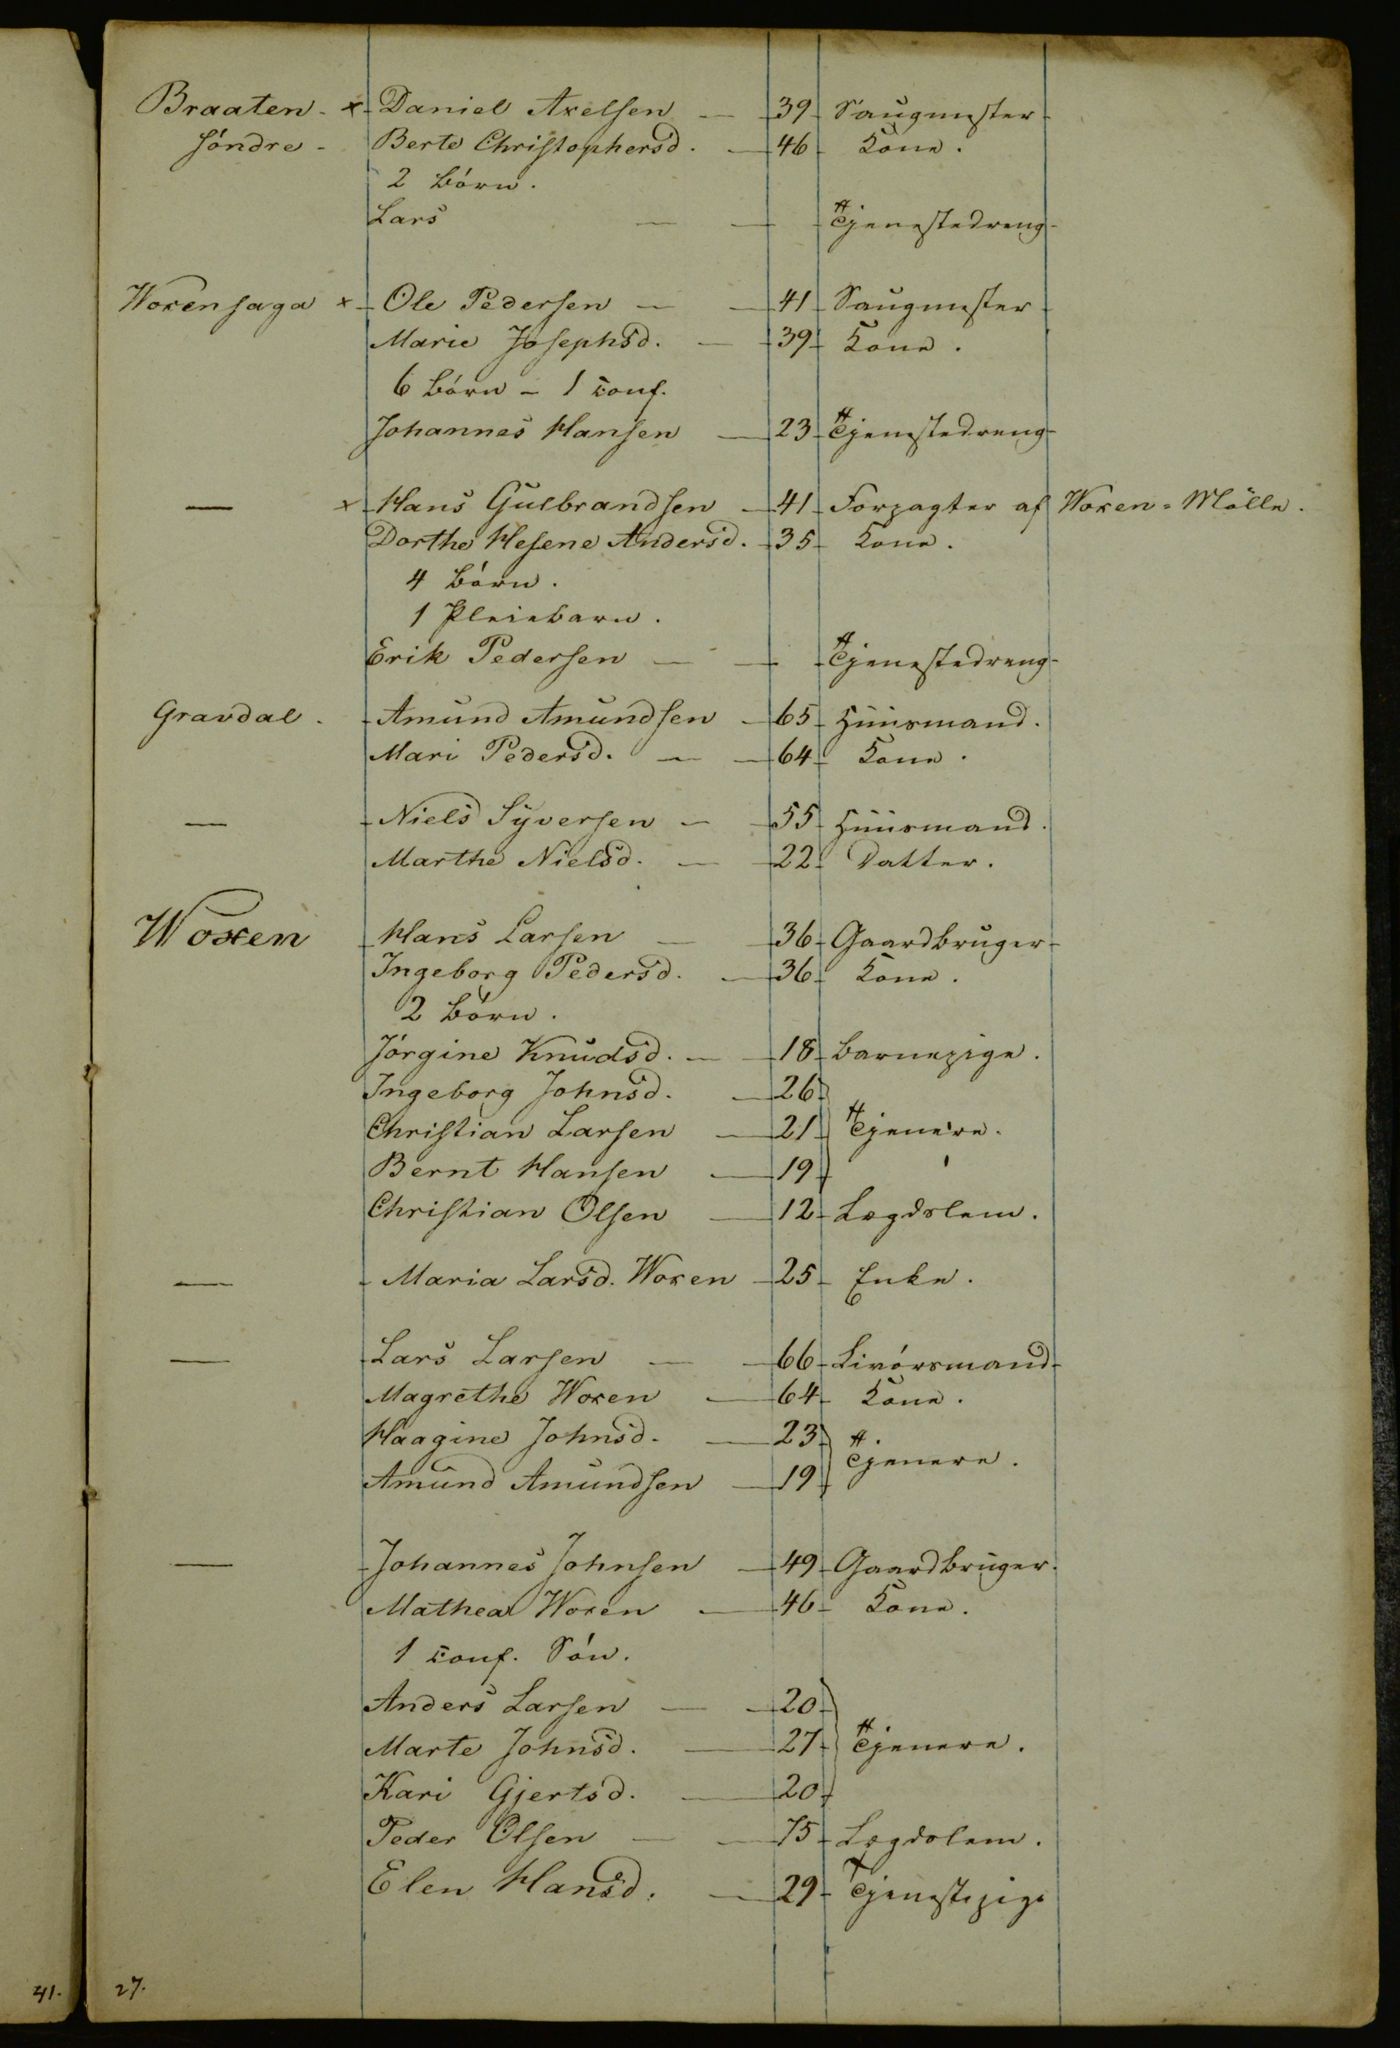 Braaten - x - Daniel Axelsen — 39 - Saugmester -
söndre - Berte Christophersd. — 46 - Kone.
2 Börn.
Lars — — Tjenestedreng -
Woxensaga x - Ole Pedersen — — 41 - Saugmester -
Marie Josephsd. — 39 - Kone.
6 Börn - 1 conf.
Johannes Hansen — 23 - Tjenestedreng -
— x Hans Gulbrandsen - 41 - Forpagter af Woxen = Mölle.
Dorthe Helene Andersd. - 35 - Kone.
4 Börn.
1 Pleiebarn.
Erik Pedersen — — - Tjenestedreng -
Gravdal. - Amund Amundsen - 65 - Huusmand.
Mari Pedersd. — — 64 - Kone.
— - Niels Syversen — - 55 - Huusmand.
Marthe Nielsd. — - 22 - Datter.
Woxen - Hans Larsen — - 36 - Gaardbruger -
Ingeborg Pedersd. — 36 - Kone.
2 Börn.
Jörgine Knudsd. — - 18 - Barnepige.
Ingeborg Johnsd. — 26 -
Christian Larsen — 21 - Tjenere.
Bernt Hansen — 19 -
Christian Olsen — 12 - Lægdslem.
— - Maria Larsd. Woxen - 25 - Enke.
— - Lars Larsen — - 66 - Livörsmand -
Magrethe Woxen — 64 - Kone.
Haagine Johnsd. — 23 -
Tjenere.
Amund Amundsen — 19 -
— - Johannes Johnsen — 49 - Gaardbruger.
Mathea Woxen — 46 - Kone.
1 conf. Sön.
Anders Larsen — — 20 -
Marte Johnsd. — 27 - Tjenere.
Kari Gjertsd. — 20 -
Peder Olsen — — 75 - Lægdslem.
Elen Hansd. — 29 - Tjenestepige
41. 27.